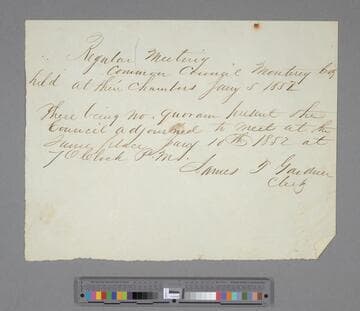 Regular Meeting
Common Council Monterey City
held at their Chambers Jany 5 1852
There being no quorum present the
Council adjourned to meet at the
same place Jany 10th 1852 at
7 O'Clock P.M.
James F Gardner
Clerk